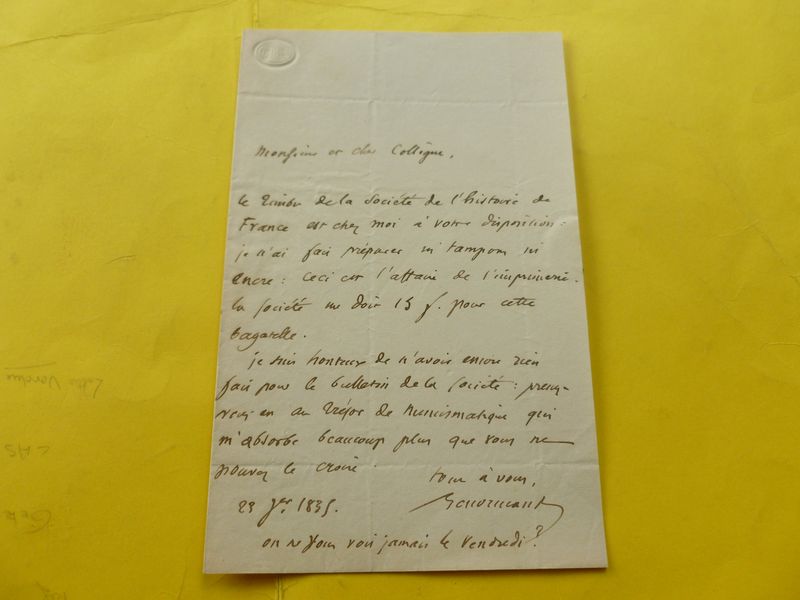 Monsieur et cher Collègue,
le timbre de la société de l'histoire de
France est chez moi à votre disposition :
je n'ai fait préparer ni tampon ni
encre : ceci est l'affaire de l'imprimerie.
la société me doit 15 f. pour cette
bagatelle.
je suis honteux de n'avoir encore rien
fait pour le bulletin de la société : prenez-
vous en au Trésor de Numismatique qui
m'absorbe beaucoup plus que vous ne
pouvez le croire.
tout à vous,
23 1835.
Lenormant
on ne vous voit jamais le vendredi ?